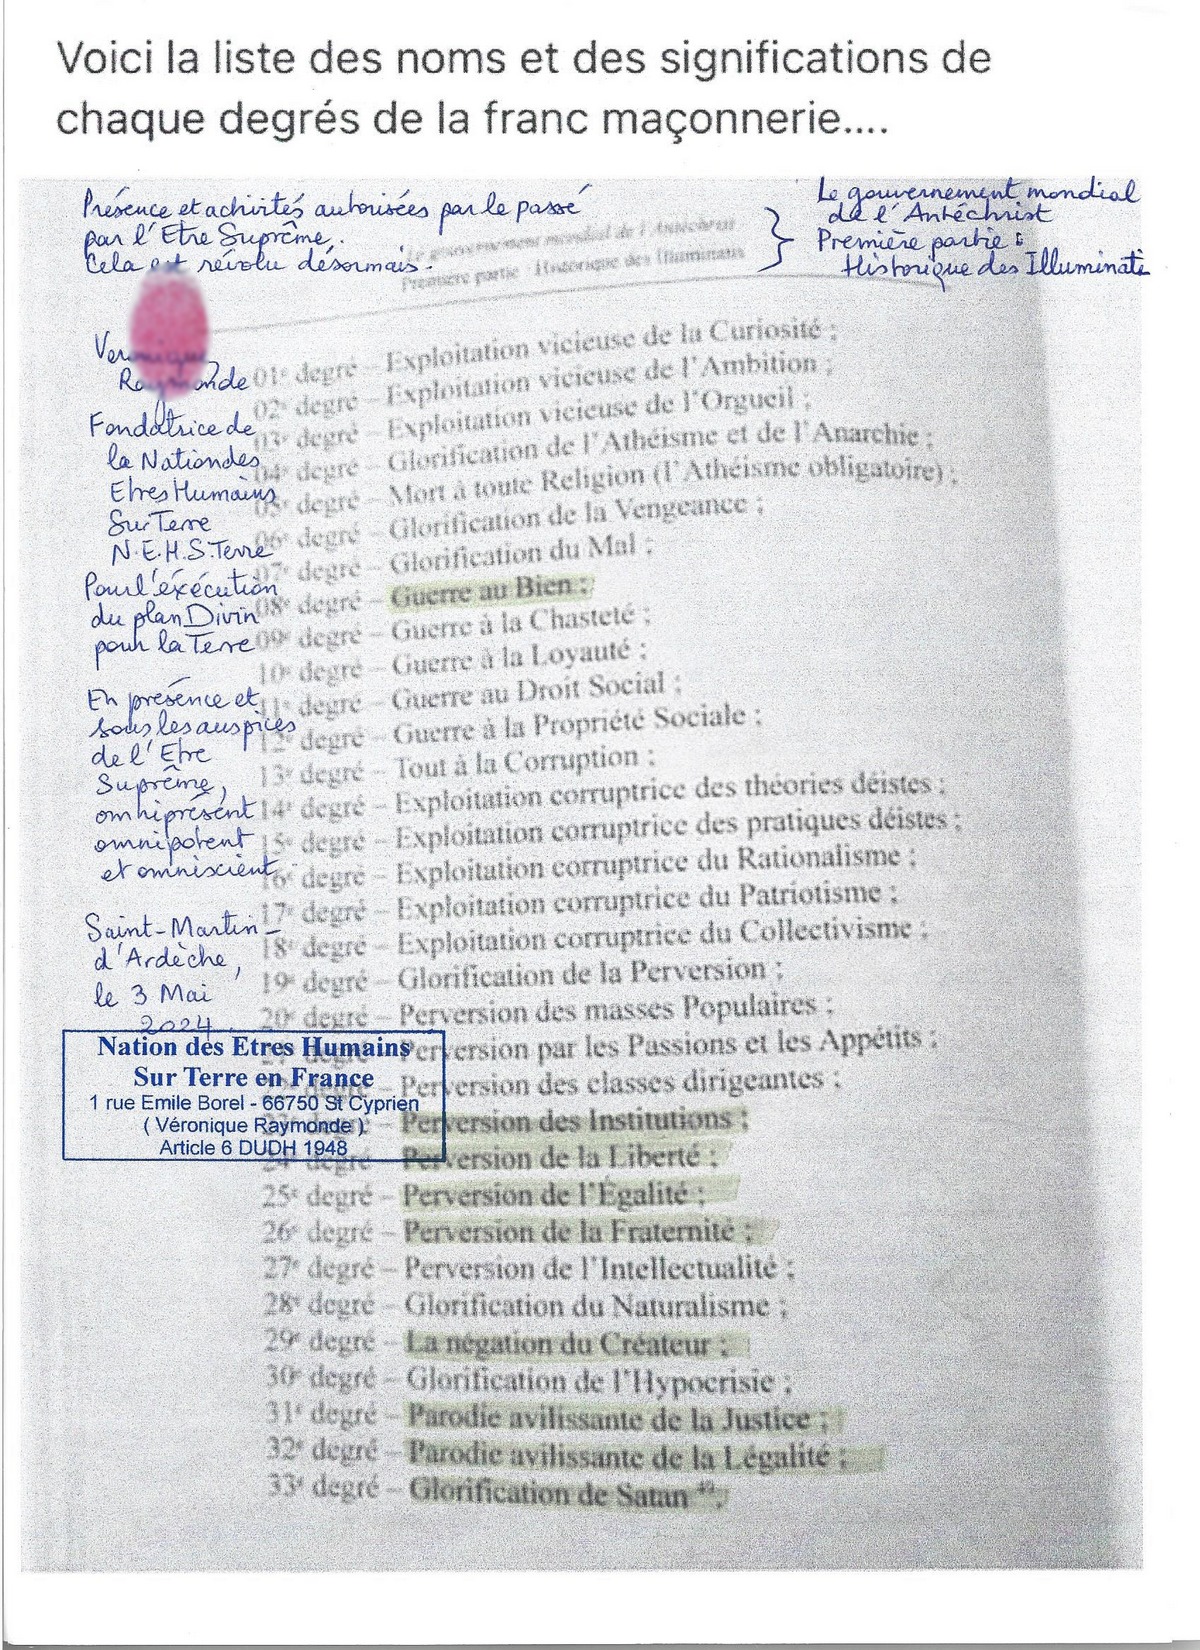 Voici la liste des noms et des significations de
chaque degrés de la franc maçonnerie....
Présence et activités autorisées par le passé
par l'Etre Suprême.
Cela est révolu désormais.
Le gouvernement mondial
de l'Antéchrist
Première partie :
Historique des Illuminati
Le gouvernement mondial de l'Antéchrist
Première partie : Historique des Illuminatis
Véronique
Raymonde
Fondatrice de
la Nation des
Etres Humains
Sur Terre
N.E.H.S.Terre
Pour l'exécution
du plan Divin
pour la Terre
En présence et
sous les auspices
de l'Etre
Suprême,
omniprésent
omnipotent
et omniscient.
Saint-Martin-
d'Ardèche,
le 3 Mai
2024.
Nation des Etres Humains
Sur Terre en France
1 rue Emile Borel - 66750 St Cyprien
( Véronique Raymonde )
Article 6 DUDH 1948
01e degré – Exploitation vicieuse de la Curiosité ;
02e degré – Exploitation vicieuse de l'Ambition ;
03e degré – Exploitation vicieuse de l'Orgueil ;
04e degré – Glorification de l'Athéisme et de l'Anarchie ;
05e degré – Mort à toute Religion (l'Athéisme obligatoire) ;
06e degré – Glorification de la Vengeance ;
07e degré – Glorification du Mal ;
08e degré – Guerre au Bien ;
09e degré – Guerre à la Chasteté ;
10e degré – Guerre à la Loyauté ;
11e degré – Guerre au Droit Social ;
12e degré – Guerre à la Propriété Sociale ;
13e degré – Tout à la Corruption ;
14e degré – Exploitation corruptrice des théories déistes ;
15e degré – Exploitation corruptrice des pratiques déistes ;
16e degré – Exploitation corruptrice du Rationalisme ;
17e degré – Exploitation corruptrice du Patriotisme ;
18e degré – Exploitation corruptrice du Collectivisme ;
19e degré – Glorification de la Perversion ;
20e degré – Perversion des masses Populaires ;
Perversion par les Passions et les Appétits ;
Perversion des classes dirigeantes ;
Perversion des Institutions ;
24e degré – Perversion de la Liberté ;
25e degré – Perversion de l'Égalité ;
26e degré – Perversion de la Fraternité ;
27e degré – Perversion de l'Intellectualité ;
28e degré – Glorification du Naturalisme ;
29e degré – La négation du Créateur ;
30e degré – Glorification de l'Hypocrisie ;
31e degré – Parodie avilissante de la Justice ;
32e degré – Parodie avilissante de la Légalité ;
33e degré – Glorification de Satan